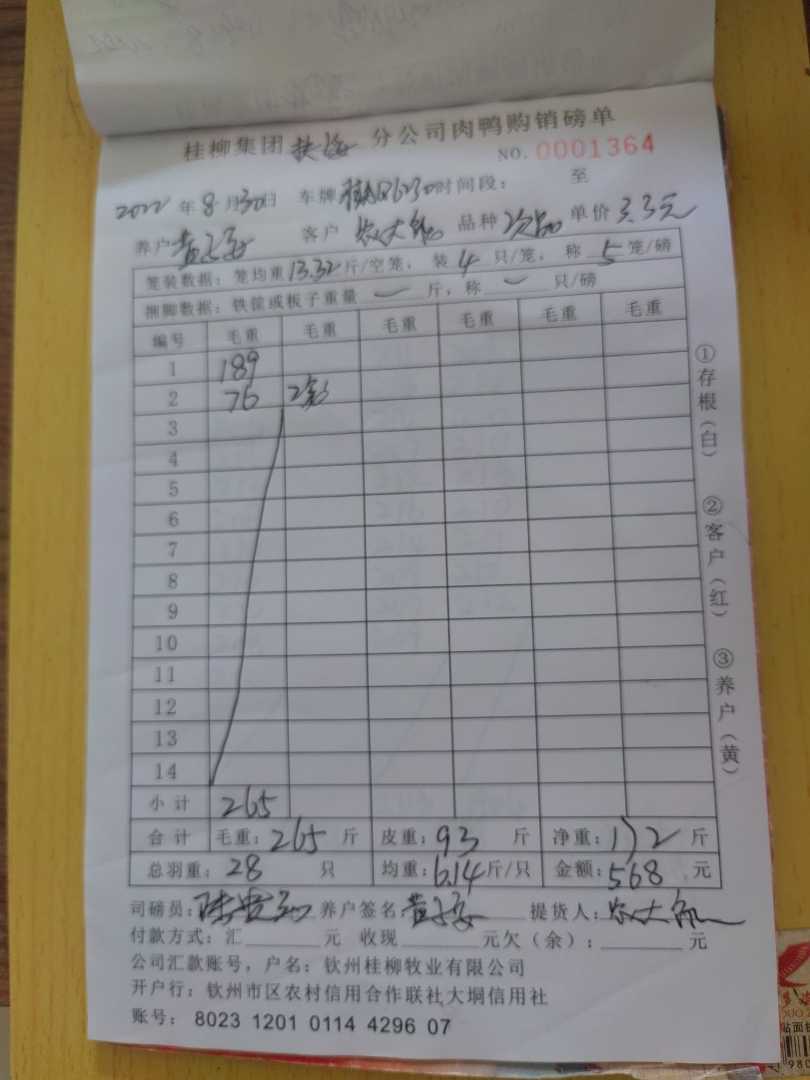 桂柳集团 扶绥 分公司肉鸭购销磅单
NO. 0001364
2022年8月30日 车牌 时间段： 至
养户 客户 农大 品种 次品 单价 3.3元
笼装数据：笼均重13.32斤/空笼，装4只/笼，称5笼/磅
捆脚数据：铁筐或板子重量 — 斤，称 — 只/磅
编号 毛重 毛重 毛重 毛重 毛重 毛重
1 189
2 76 2
3
4
5
6
7
8
9
10
11
12
13
14
小计 265
合计 毛重：265斤 皮重：93斤 净重：172斤
总羽重：28只 均重：6.14斤/只 金额：568元
司磅员：陈 养户签名 提货人：农大
付款方式：汇 元 收现 元欠（余）： 元
公司汇款账号，户名：钦州桂柳牧业有限公司
开户行：钦州市区农村信用合作联社大垌信用社
账号：8023 1201 0114 4296 07
①存根（白）
②客户（红）
③养户（黄）